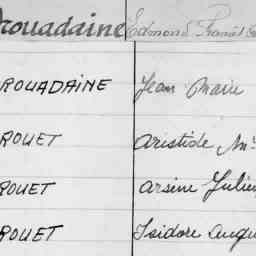 rouadaine Edmond
ROUADAINE Jean Marie
ROUET Aristide M
ROUET Arsène Julien
ROUET Isidore Augu